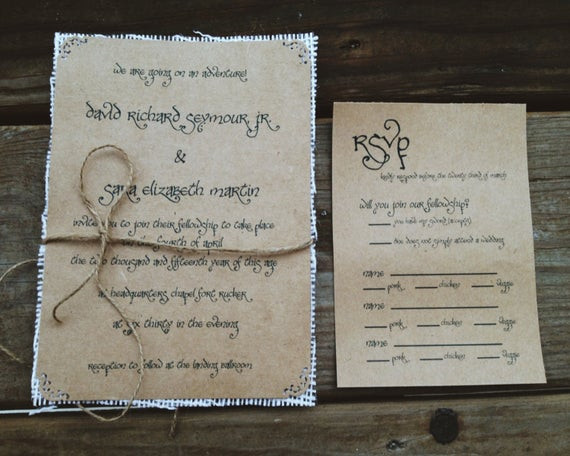 we are going on an adventure!
david richard seymour jr.
&
sara elizabeth martin
invite you to join their fellowship to take place
fourth of april
the two thousand and fifteenth year of this age
at headquarters chapel fort rucker
at six thirty in the evening
reception to follow at the landing ballroom
rsvp
kindly respond before the twenty third of march
will you join our fellowship?
you have my sword (accept)
one does not simply attend a wedding
name
pork chicken veggie
name
pork chicken veggie
name
pork chicken veggie